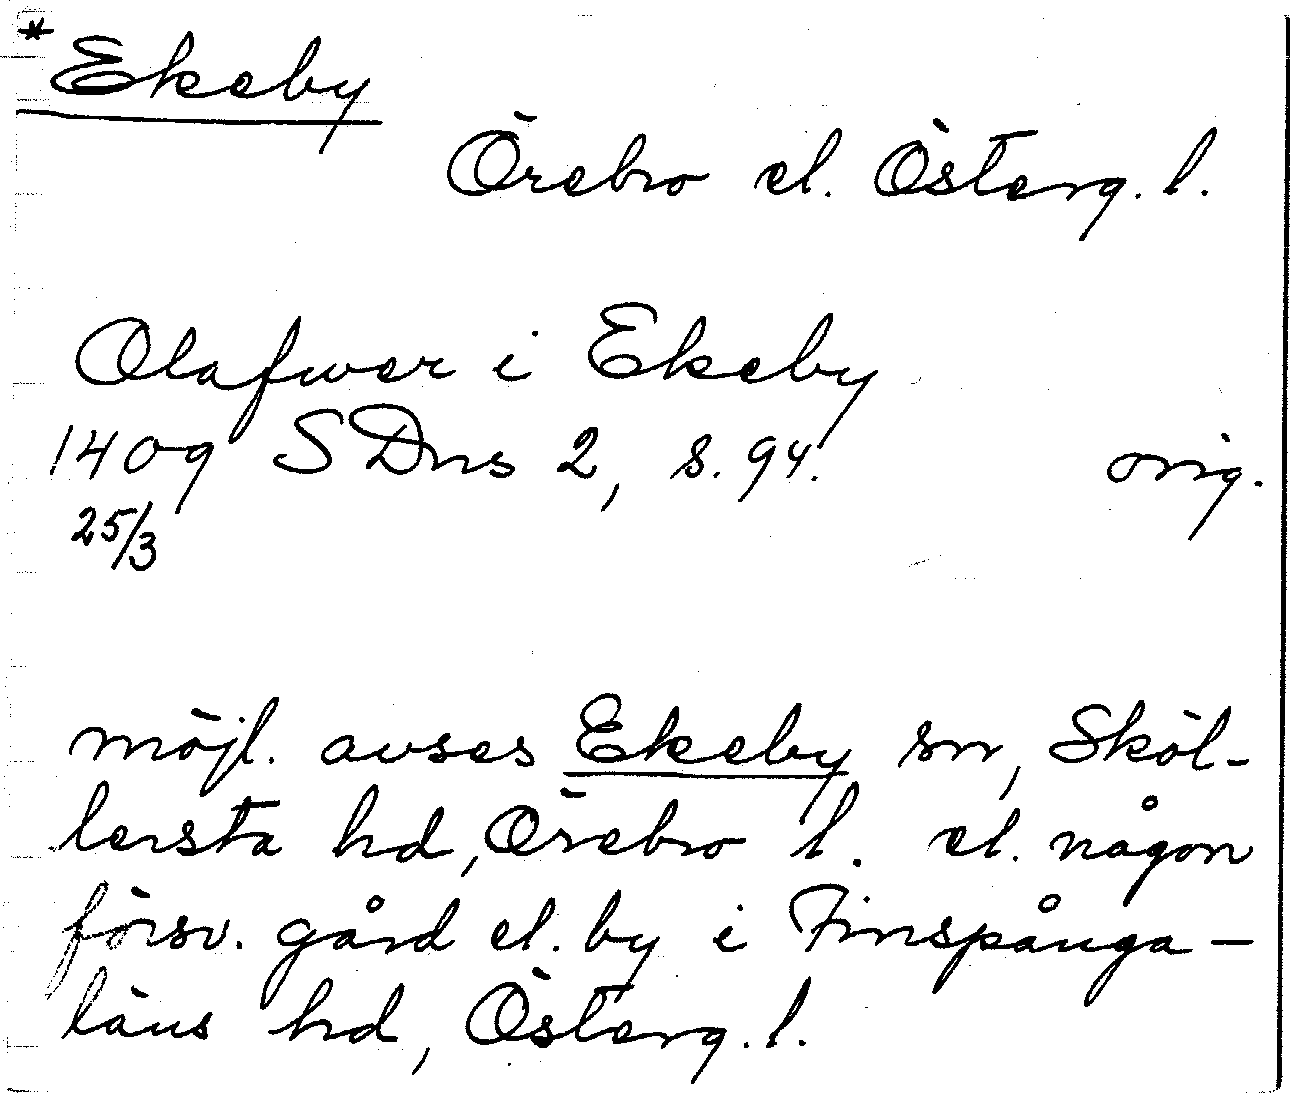 *Ekeby
Örebro el. Österg. l.
Olafwer i Ekeby
1409 SDns 2, s. 94. orig.
25/3
möjl. avses Ekeby sn, Sköl-
lersta hd, Örebro l. el. någon
försv. gård el. by i Finspånga-
läns hd, Österg. l.